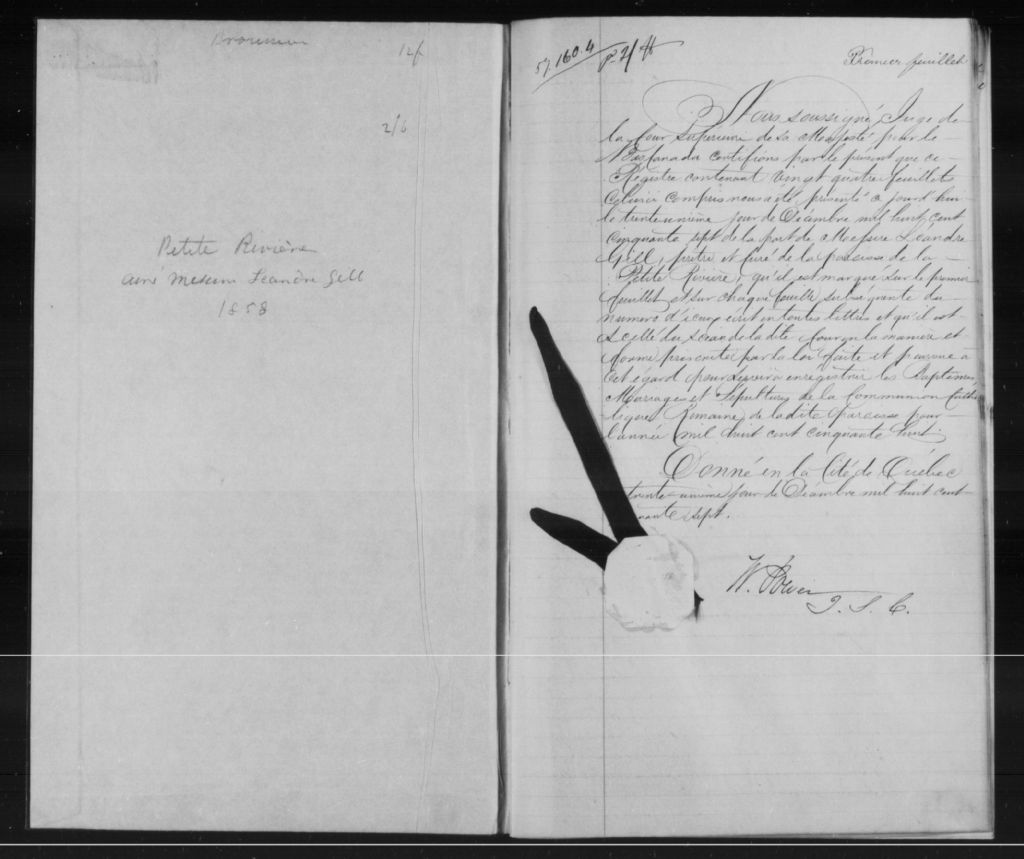 12/
2/6
Petite Rivière
Curé Messire Leandre Gill
1858
57.160.4
p. 2/
Premier feuillet
Nous soussigné, Juge de
la Cour Supérieure de Sa Majesté pour le
Bas Canada certifions par le présent que ce
Régistre contenant vingt quatre feuillets
celui ci compris nous a été présenté a jourd'hui
le trente unième jour de Décembre mil huit cent
cinquante sept de la part de Messire Léandre
Gill, prêtre et Curé de la paroisse de la
Petite Rivière, qu'il est marqué sur le premier
feuillet et sur chaque feuille subséquente du
numero d'iceux ecrit en toutes lettres et qu'il est
Scellé du Sceau de la dite Cour en la manière et
forme préscrite par la loi faite et pourvue à
cet égard pour servir à enregistrer les Baptêmes,
Mariages et Sépultures de la Communion Catho
lique Romaine de la dite paroisse pour
l'année mil huit cent cinquante huit.
Donné en la Cité de Québec
trente-unième jour de Décembre mil huit cent
nante sept.
W. Power
J. S. C.